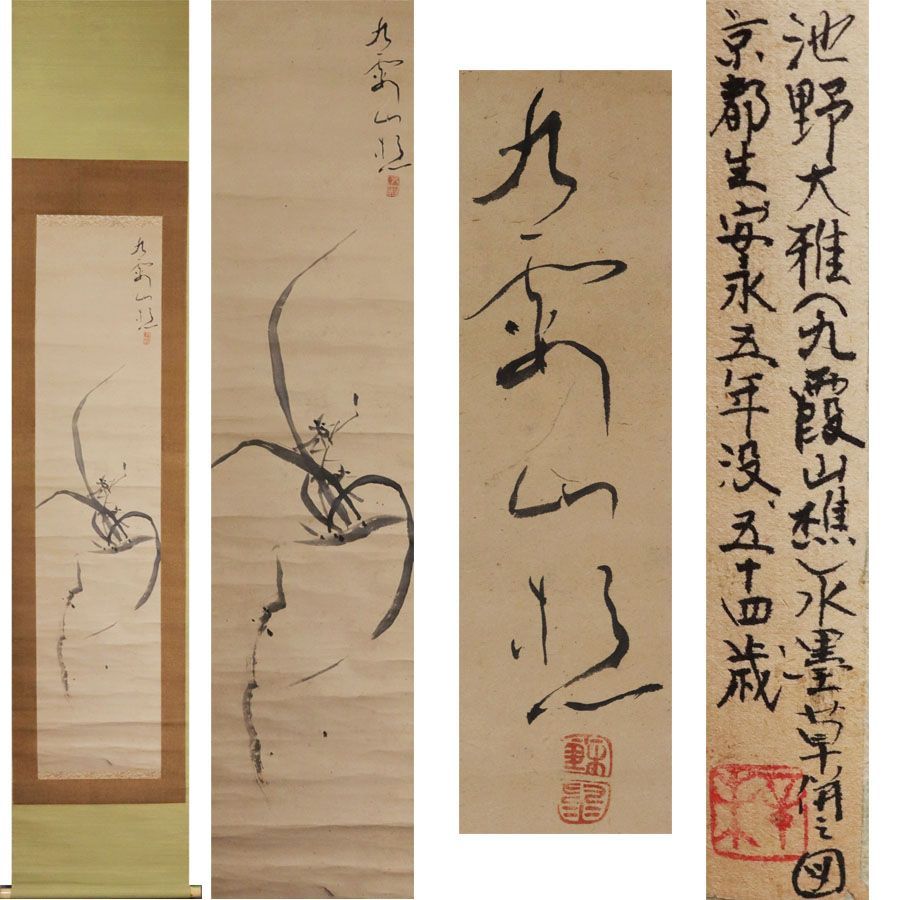 九霞山樵
九霞山樵
九霞山樵
池野大雅(九霞山樵)水墨草併之図
京都生安永五年没五十四歳